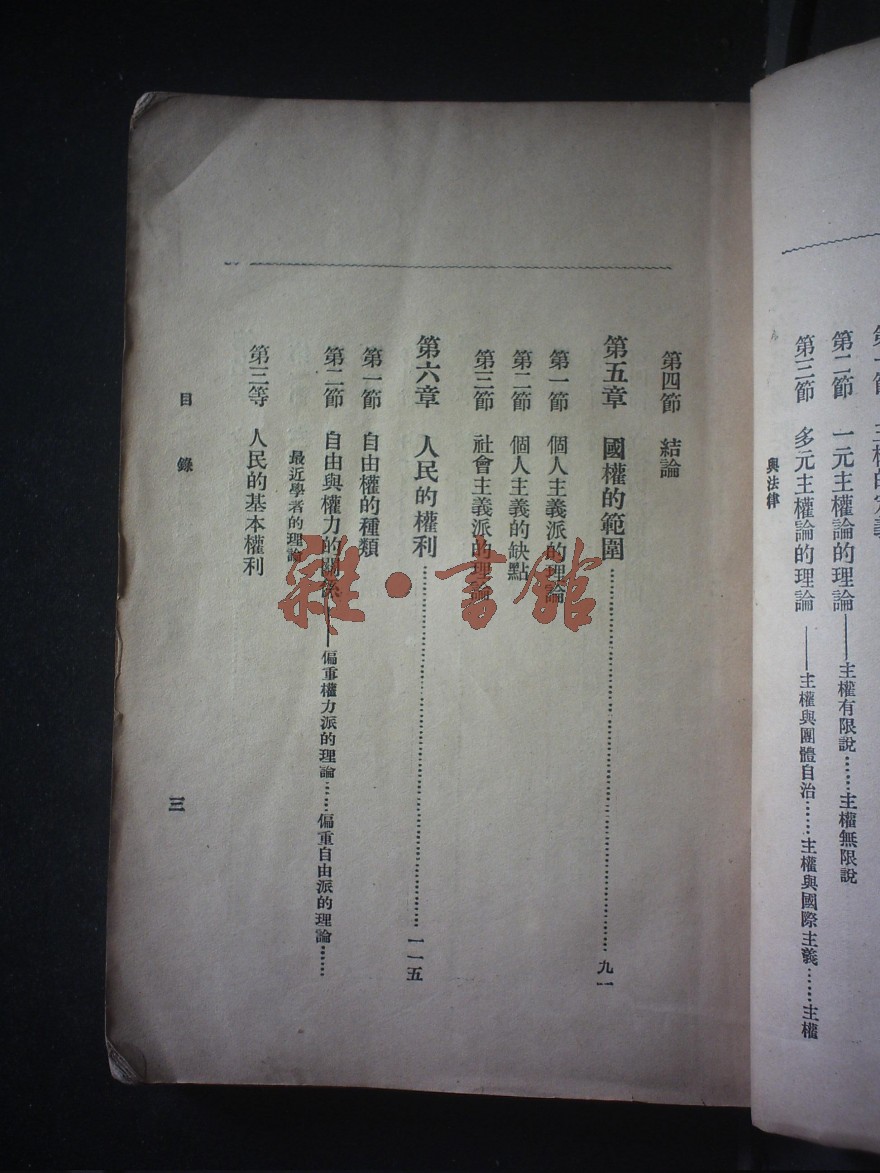 主權的定義
第二節　一元主權論的理論——主權有限說……主權無限說
第三節　多元主權論的理論——主權與團體自治……主權與國際主義……主權
與法律
第四節　結論
第五章　國權的範圍……九一
第一節　個人主義派的理論
第二節　個人主義的缺點
第三節　社會主義派的理論
第六章　人民的權利……一一五
第一節　自由權的種類
第二節　自由與權力的關係——偏重權力派的理論……偏重自由派的理論……
最近學者的理論
第三等　人民的基本權利
目錄
三
雜·書館